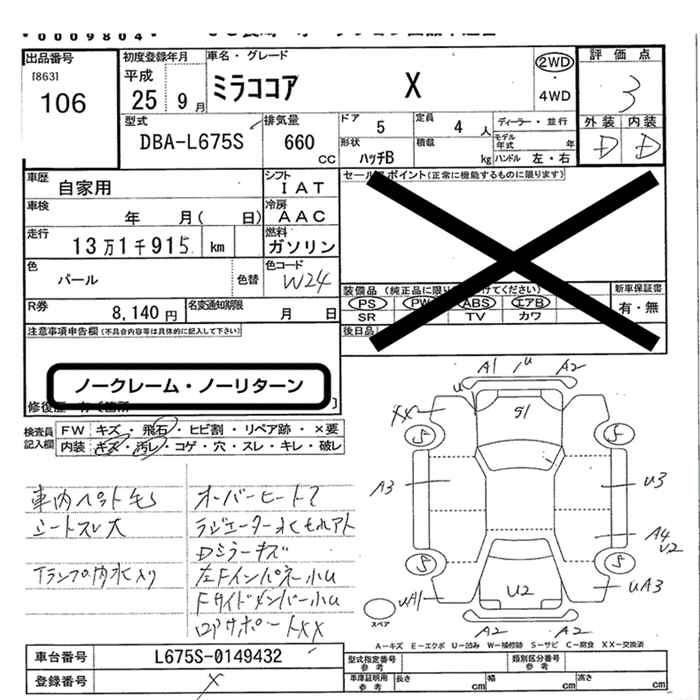 0009804
出品番号
[863]
106
初度登録年月
平成
25 9月
車名・グレード
ミラココア X
2WD
・
4WD
評価点
3
外装 内装
D D
型式
DBA-L675S
排気量
660
cc
ドア
5
定員
4 人
ディーラー・並行
モデル年式 年
形状
ハッチB
積載
kg
ハンドル 左・右
車歴
自家用
シフト
IAT
車検
年 月( 日)
冷房
AAC
走行
13万1千915 km
燃料
ガソリン
色
パール
色替
色コード
W24
R券
8,140円
名変通知期限
月 日
セールスポイント(正常に機能するものに限ります)
装備品(純正品に限り
けてください)
PS PW ABS エアB
SR TV カワ
新車保証書
有・無
後日品
注意事項申告欄(不具合内容等は具体的に記入して下さい)
ノークレーム・ノーリターン
検査員
記入欄
FW キズ・飛石・ヒビ割・リペア跡・×要
内装 キズ・汚レ・コゲ・穴・スレ・キレ・破レ
車内ペット毛S
シートスレ大
Fランプ内水入り
オーバーヒート?
ラジエーター水もれアト
Dミラーキズ
左Fインパネ小U
Fサイドメンバー小U
ロアサポートXX
A1 U A2
U
XX
G1
S S
A3
U3
A4
U2
S S
UA1
U2
UA3
A2 A2
スペア
A−キズ E−エクボ U−凹み W−補修跡 S−サビ C−腐食 XX−交換済
車台番号
L675S-0149432
登録番号
X
型式指定番号
参考
類別区分番号
参考
車庫証明用
参考
長さ cm
幅 cm
高さ cm